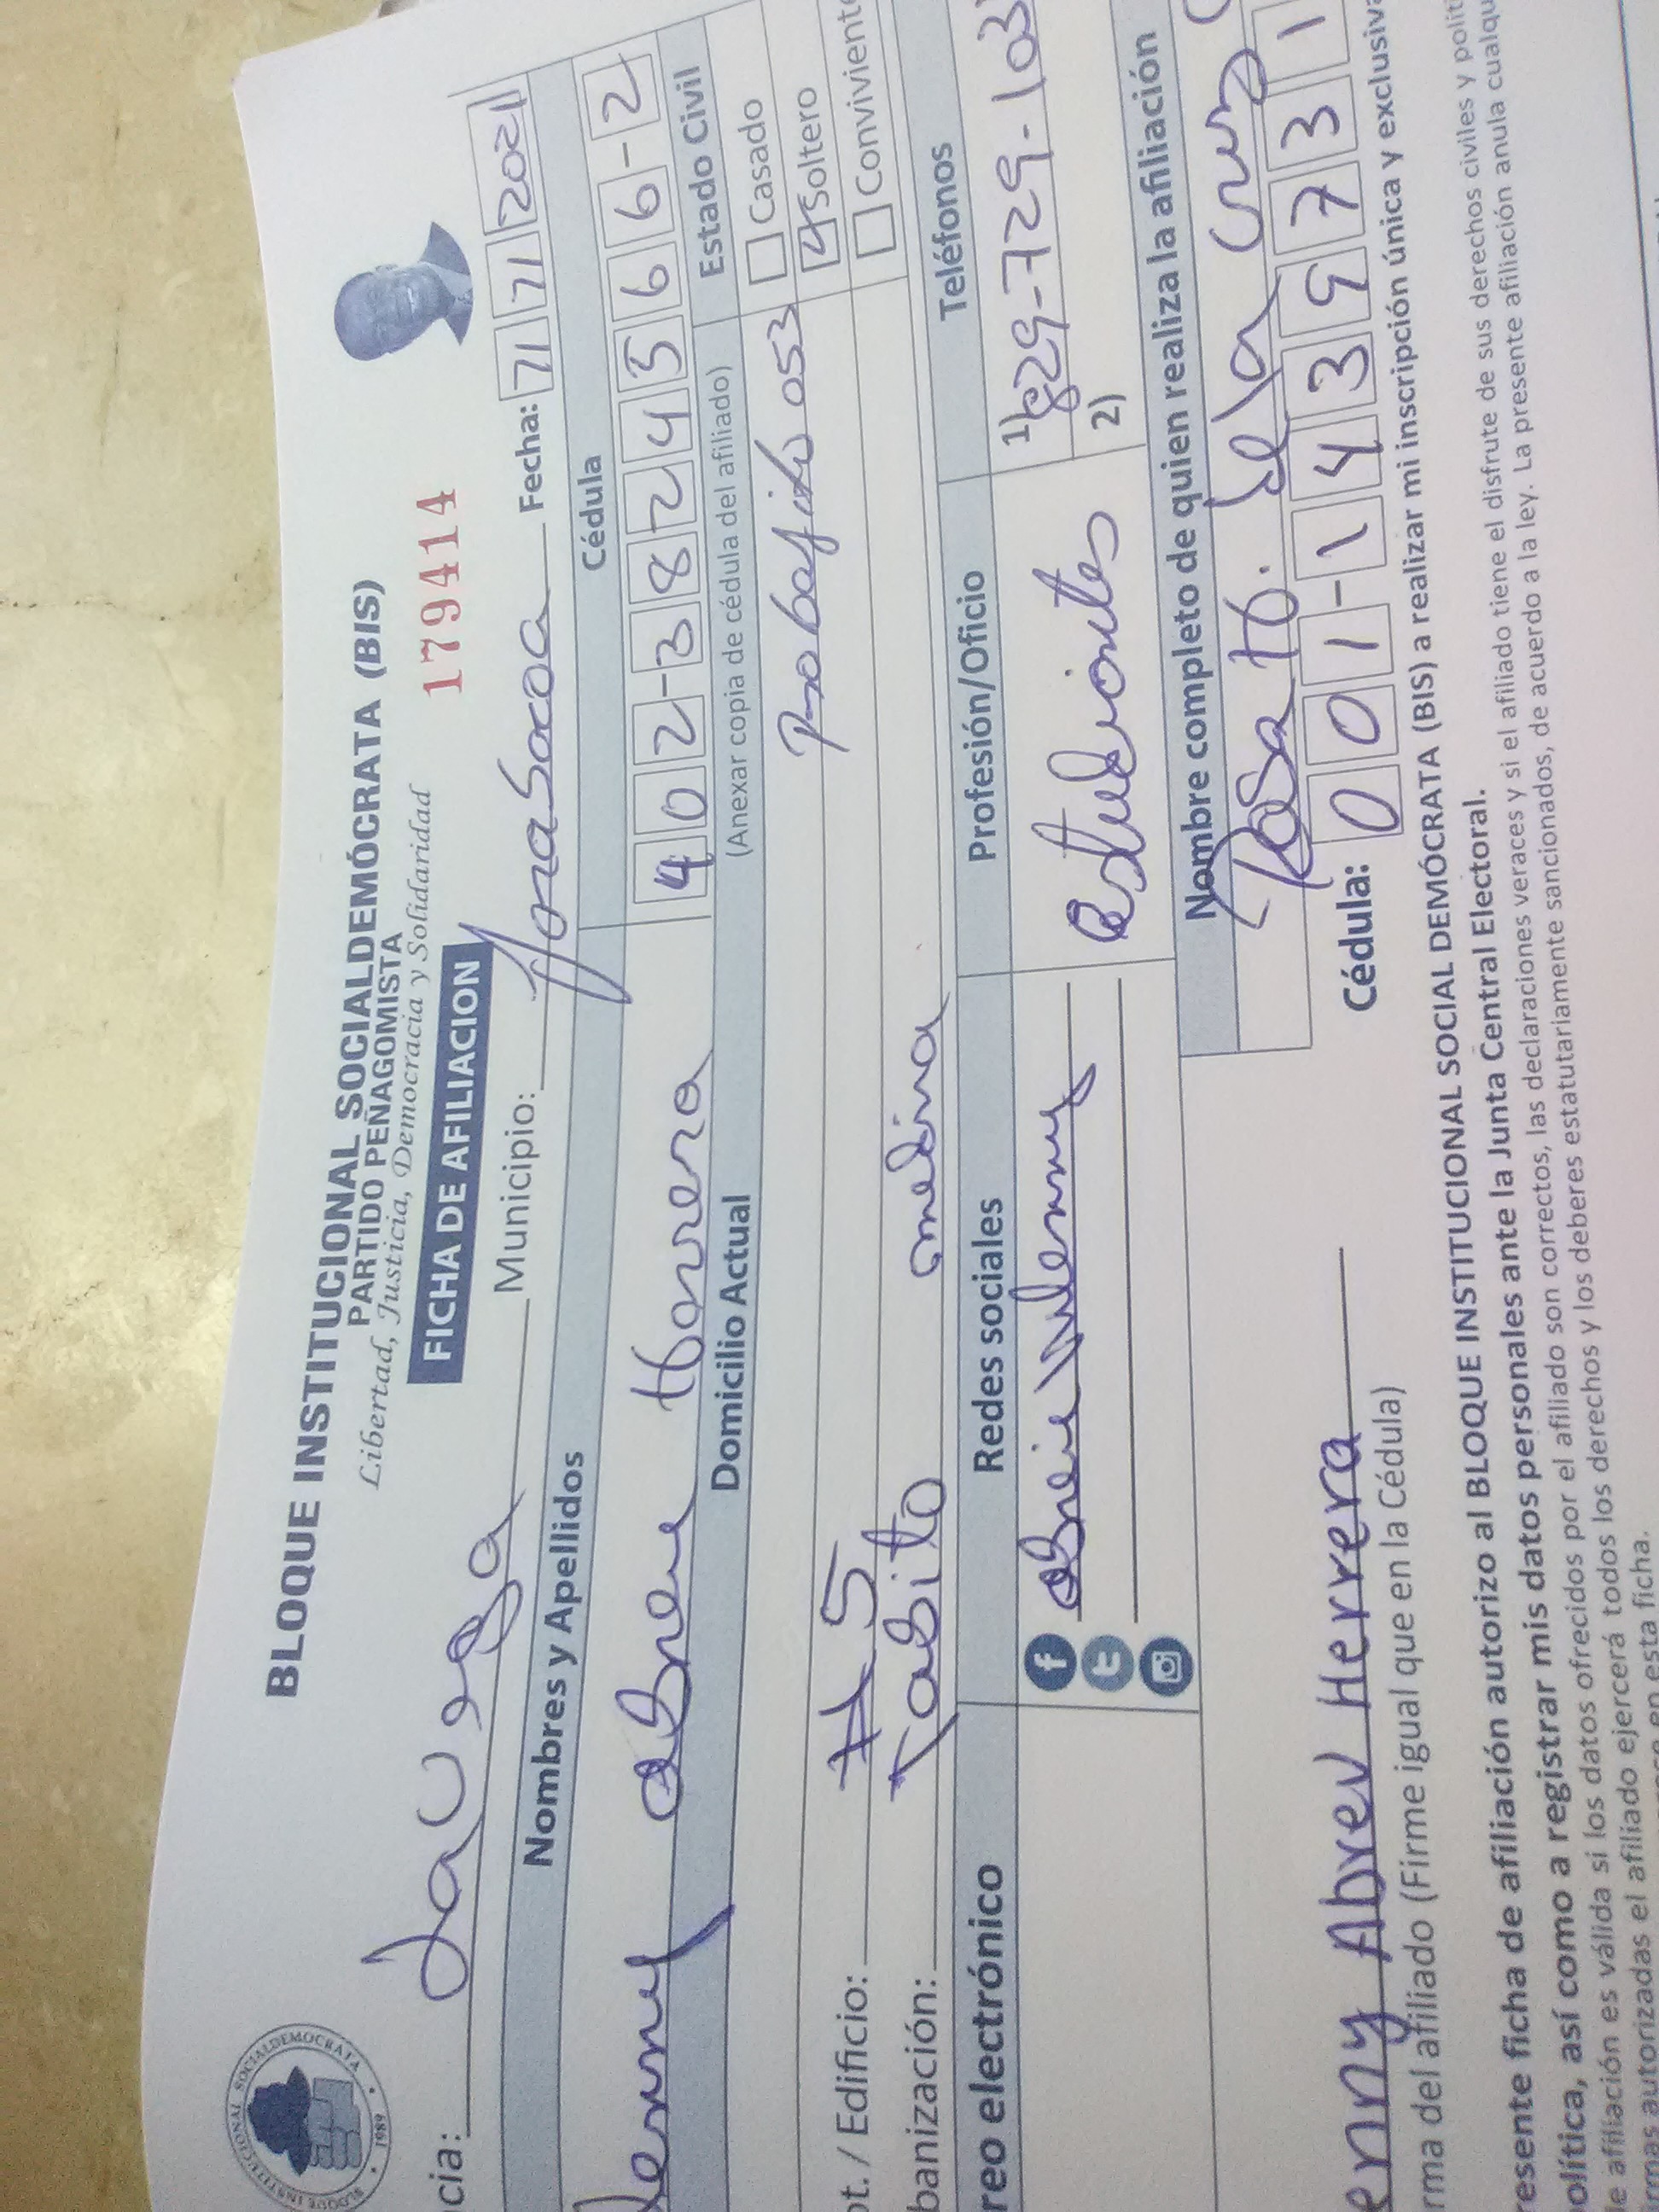 BLOQUE INSTITUCIONAL SOCIALDEMÓCRATA (BIS)
PARTIDO PEÑAGOMISTA
Libertad, Justicia, Democracia y Solidaridad
FICHA DE AFILIACION
179414
BLOQUE INSTITUCIONAL SOCIALDEMOCRATA
1989
cia: La Vega Municipio: Fecha: 2021
Nombres y Apellidos Cédula
Abreu Herrera 402-3824566-2
Domicilio Actual (Anexar copia de cédula del afiliado) Estado Civil
Casado
Soltero
Conviviente
053
/ Edificio: #5
banización: Tabito medina
reo electrónico Redes sociales Profesión/Oficio Teléfonos
estudiantes 1) 829-729-103
2)
Nombre completo de quien realiza la afiliación
Rosa H. de la Cruz
Cédula: 001-1439731
enny Abreu Herrera
rma del afiliado (Firme igual que en la Cédula)
esente ficha de afiliación autorizo al BLOQUE INSTITUCIONAL SOCIAL DEMÓCRATA (BIS) a realizar mi inscripción única y exclusiva
olítica, así como a registrar mis datos personales ante la Junta Central Electoral.
e afiliación es válida si los datos ofrecidos por el afiliado son correctos, las declaraciones veraces y si el afiliado tiene el disfrute de sus derechos civiles y polít
rmas autorizadas el afiliado ejercerá todos los derechos y los deberes estatutariamente sancionados, de acuerdo a la ley. La presente afiliación anula cualqu
en esta ficha.